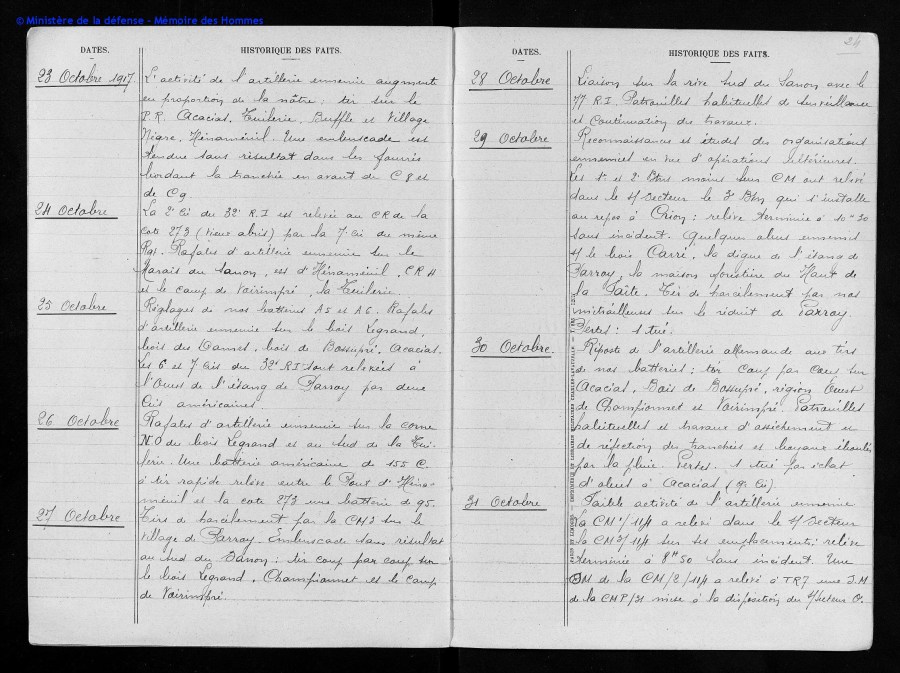 © Ministère de la défense - Mémoire des Hommes
24
DATES.
HISTORIQUE DES FAITS.
23 Octobre 1917
L'activité de l'artillerie ennemie augmente
en proportion de la nôtre : tir sur le
P.R. Acacias, Tuilerie, Buffle et Village
Nègre, Hénaménil. Une embuscade est
tendue sans résultat dans les fourrés
bordant la tranchée en avant de C8 et
de C9.
24 Octobre
La 2e Cie du 32e R.I est relevée au CR de la
cote 273 (vieux abris) par la 7e Cie du même
Rgt. Rafales d'artillerie ennemie sur le
Marais du Sanon, est d'Hénaménil, CR H
et le camp de Voirimpré, la Tuilerie.
25 Octobre
Réglages de nos batteries A5 et A6. Rafales
d'artillerie ennemie sur le bois Legrand,
bois des Dames, bois de Bossupré, Acacias.
Les 6 et 7 Cies du 32e RI sont relevées à
l'Ouest de l'étang de Parroy par deux
Cies américaines.
26 Octobre
Rafales d'artillerie ennemie sur la corne
NO du bois Legrand et au sud de la Tui-
lerie. Une batterie américaine de 155 C.
à tir rapide relève entre le Four d'Héna-
ménil et la cote 273 une batterie de 95.
27 Octobre
Tirs de harcèlement par la CM3 sur le
village de Parroy. Embuscade sans résultat
au sud du Sanon : tir coup par coup sur
le bois Legrand, Championnet et le camp
de Voirimpré.
DATES.
HISTORIQUE DES FAITS.
28 Octobre
Liaison sur la rive sud du Sanon avec le
77 R.I. Patrouilles habituelles de surveillance
et continuation des travaux.
29 Octobre
Reconnaissances et études des organisations
ennemies en vue d'opérations ultérieures.
Les 1er et 2e Btns moins leurs CM ont relevé
dans le s/secteur le 3e Btn qui s'installe
au repos à Crion : relève terminée à 10h30
sans incident. Quelques obus ennemis
s/ le bois Carré, la digue de l'étang de
Parroy, la maison forestière du Haut de
la Faîte. Tir de harcèlement par nos
mitrailleuses sur le réduit de Parroy.
Pertes : 1 tué.
30 Octobre.
Riposte de l'artillerie allemande aux tirs
de nos batteries : tir coup par coup sur
Acacias, Bois de Bossupré, région Ouest
de Championnet et Voirimpré. Patrouilles
habituelles et travaux d'assèchement et
de réfection des tranchées et boyaux éboulés
par la pluie. Pertes. 1 tué par éclat
d'obus à Acacias (9e Cie).
31 Octobre
Faible activité de l'artillerie ennemie
La CM1/114 a relevé dans le s/secteur
la CM3/114 sur ses emplacements; relève
terminée à 8h50 sans incident. Une
SM de la CM/2/114 a relevé à TR7 une S.M
de la CMP/31 mise à la disposition du s/secteur O.